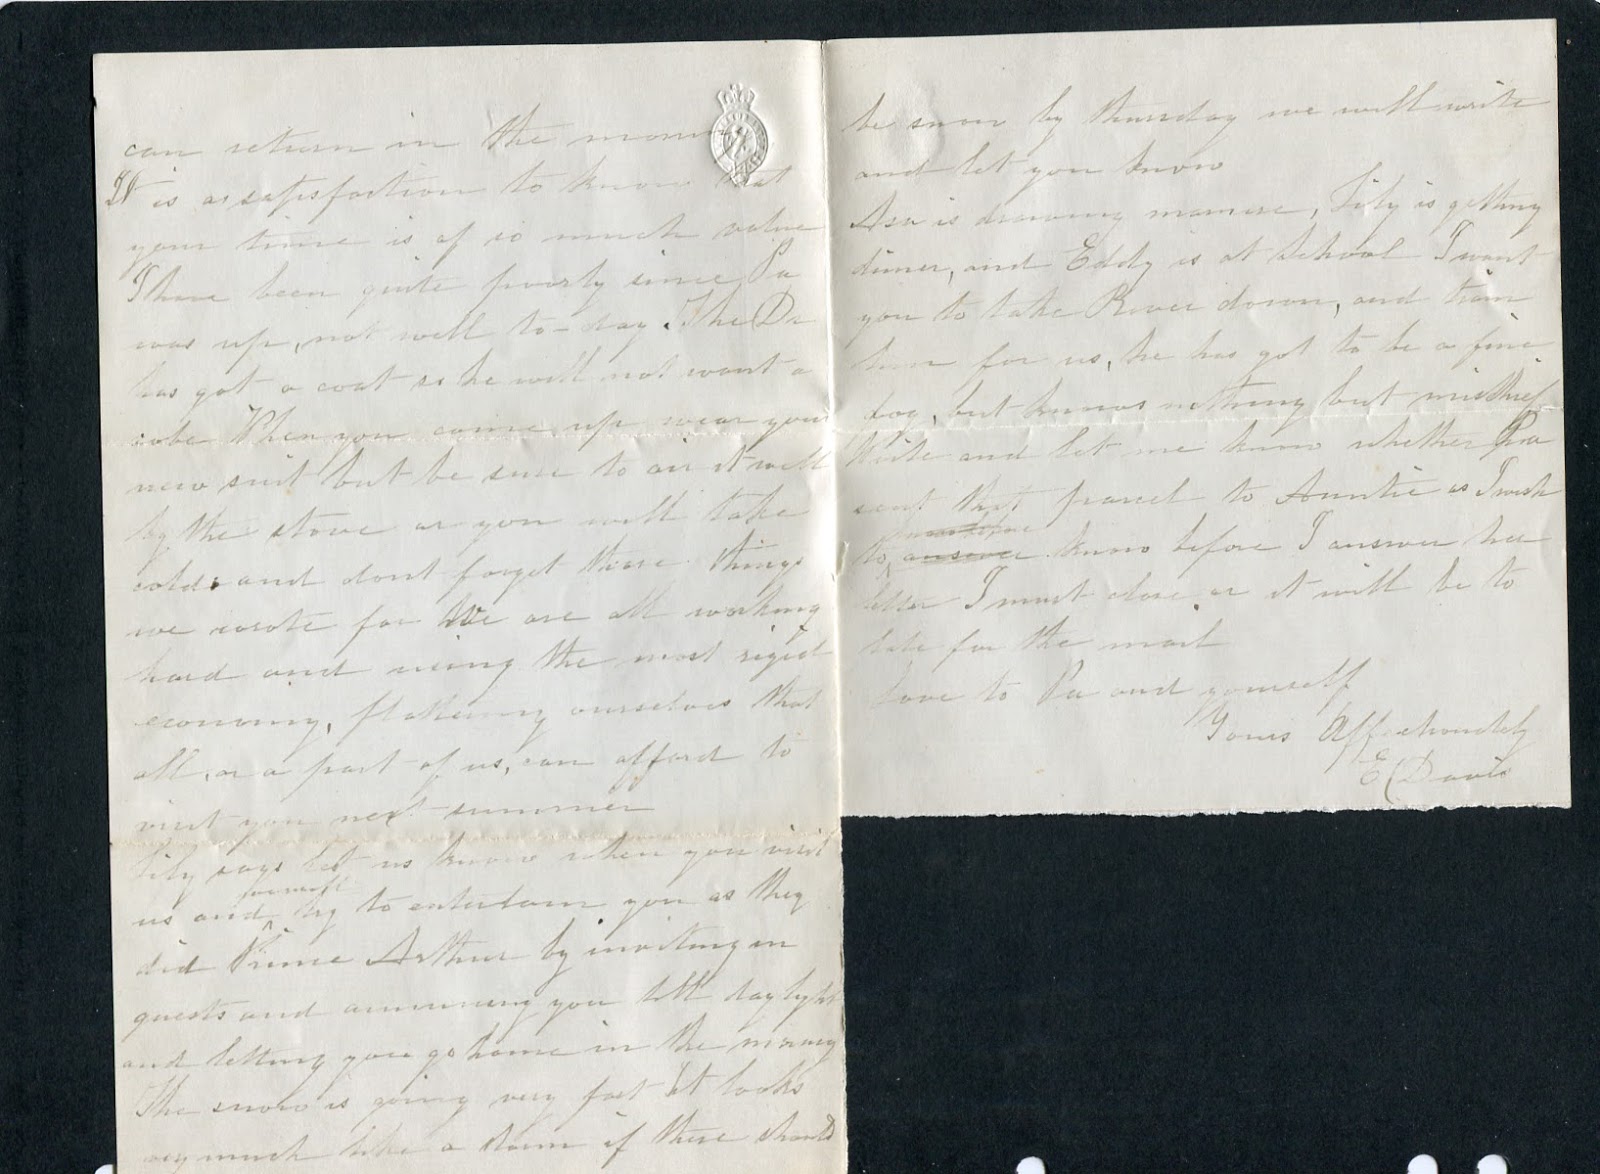 can return in the morning
It is a satisfaction to know that
your time is of so much value
I have been quite poorly since Pa
was up, not well to-day. The Dr
has got a coat so he will not want a
robe When you come up wear your
new suit but be sure to air it well
by the stove or you will take
cold. and dont forget those things
we wrote for We are all working
hard and using the most rigid
economy, flattering ourselves that
all, or a part of us, can afford to
visit you next summer
Lily says let us know when you visit
us and we will try to entertain you as they
did Prince Arthur by inviting in
guests and amusing you till daylight
and letting you go home in the morning
The snow is going very fast It looks
very much like a storm if there should
be snow by thursday we will write
and let you know
Asa is drawing manure, Lily is getting
dinner, and Eddy is at school I want
you to take Rover down, and train
him for us, he has got to be a fine
dog, but knows nothing but mischief
Write and let me know whether Pa
sent that parcel to Auntie as I wish
to know before I answer her
letter I must close or it will be to
late for the mail
Love to Pa and yourself
Yours Affectionately
E Davis